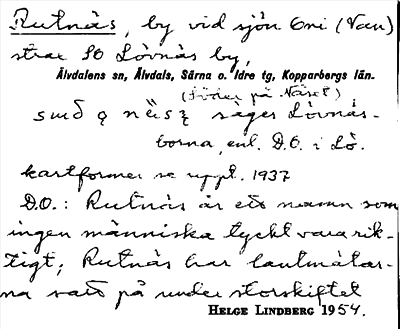 Rutnäs, by vid sjön Öni (Van)
strax SO Lövnäs by,
Älvdalens sn, Älvdals, Särna o. Idre tg, Kopparbergs län.
(Söder på Näset)
säger Lövnäs-
borna, enl. D.O. i Lö.
kartformer se uppt. 1937
D.O.: Rutnäs är ett namn som
ingen människa tyckt vara rik-
tigt; Rutnäs har lantmätar-
na satt på under storskiftet
HELGE LINDBERG 1954.